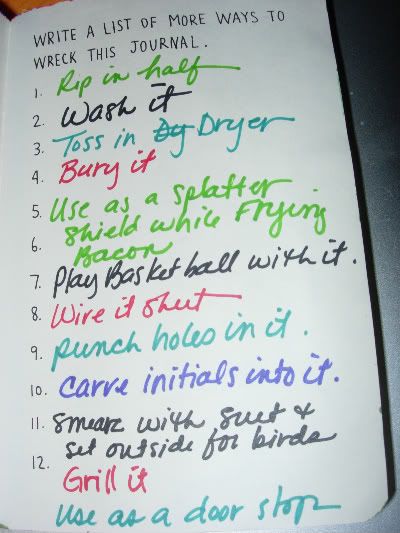 WRITE A LIST OF MORE WAYS TO
WRECK THIS JOURNAL.
1. Rip in half
2. Wash it
3. Toss in Dy Dryer
4. Bury it
5. Use as a splatter
6. shield while Frying
Bacon
7. Play Basketball with it.
8. Wire it shut
9. punch holes in it.
10. Carve initials into it.
11. smear with suet &
set outside for birds
12. Grill it
Use as a door stop